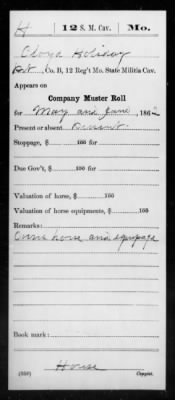 H 12 S. M. Cav. Mo.
Holiday
Pvt, Co. B, 12 Reg't Mo. State Militia Cav.
Appears on
Company Muster Roll
for May and June, 1862
Present or absent Present
Stoppage, $ 100 for
Due Gov't, $ 100 for
Valuation of horse, $ 100
Valuation of horse equipments, $ 100
Remarks:
Owns horse and equipage
Book mark:
House
(356) Copyist.